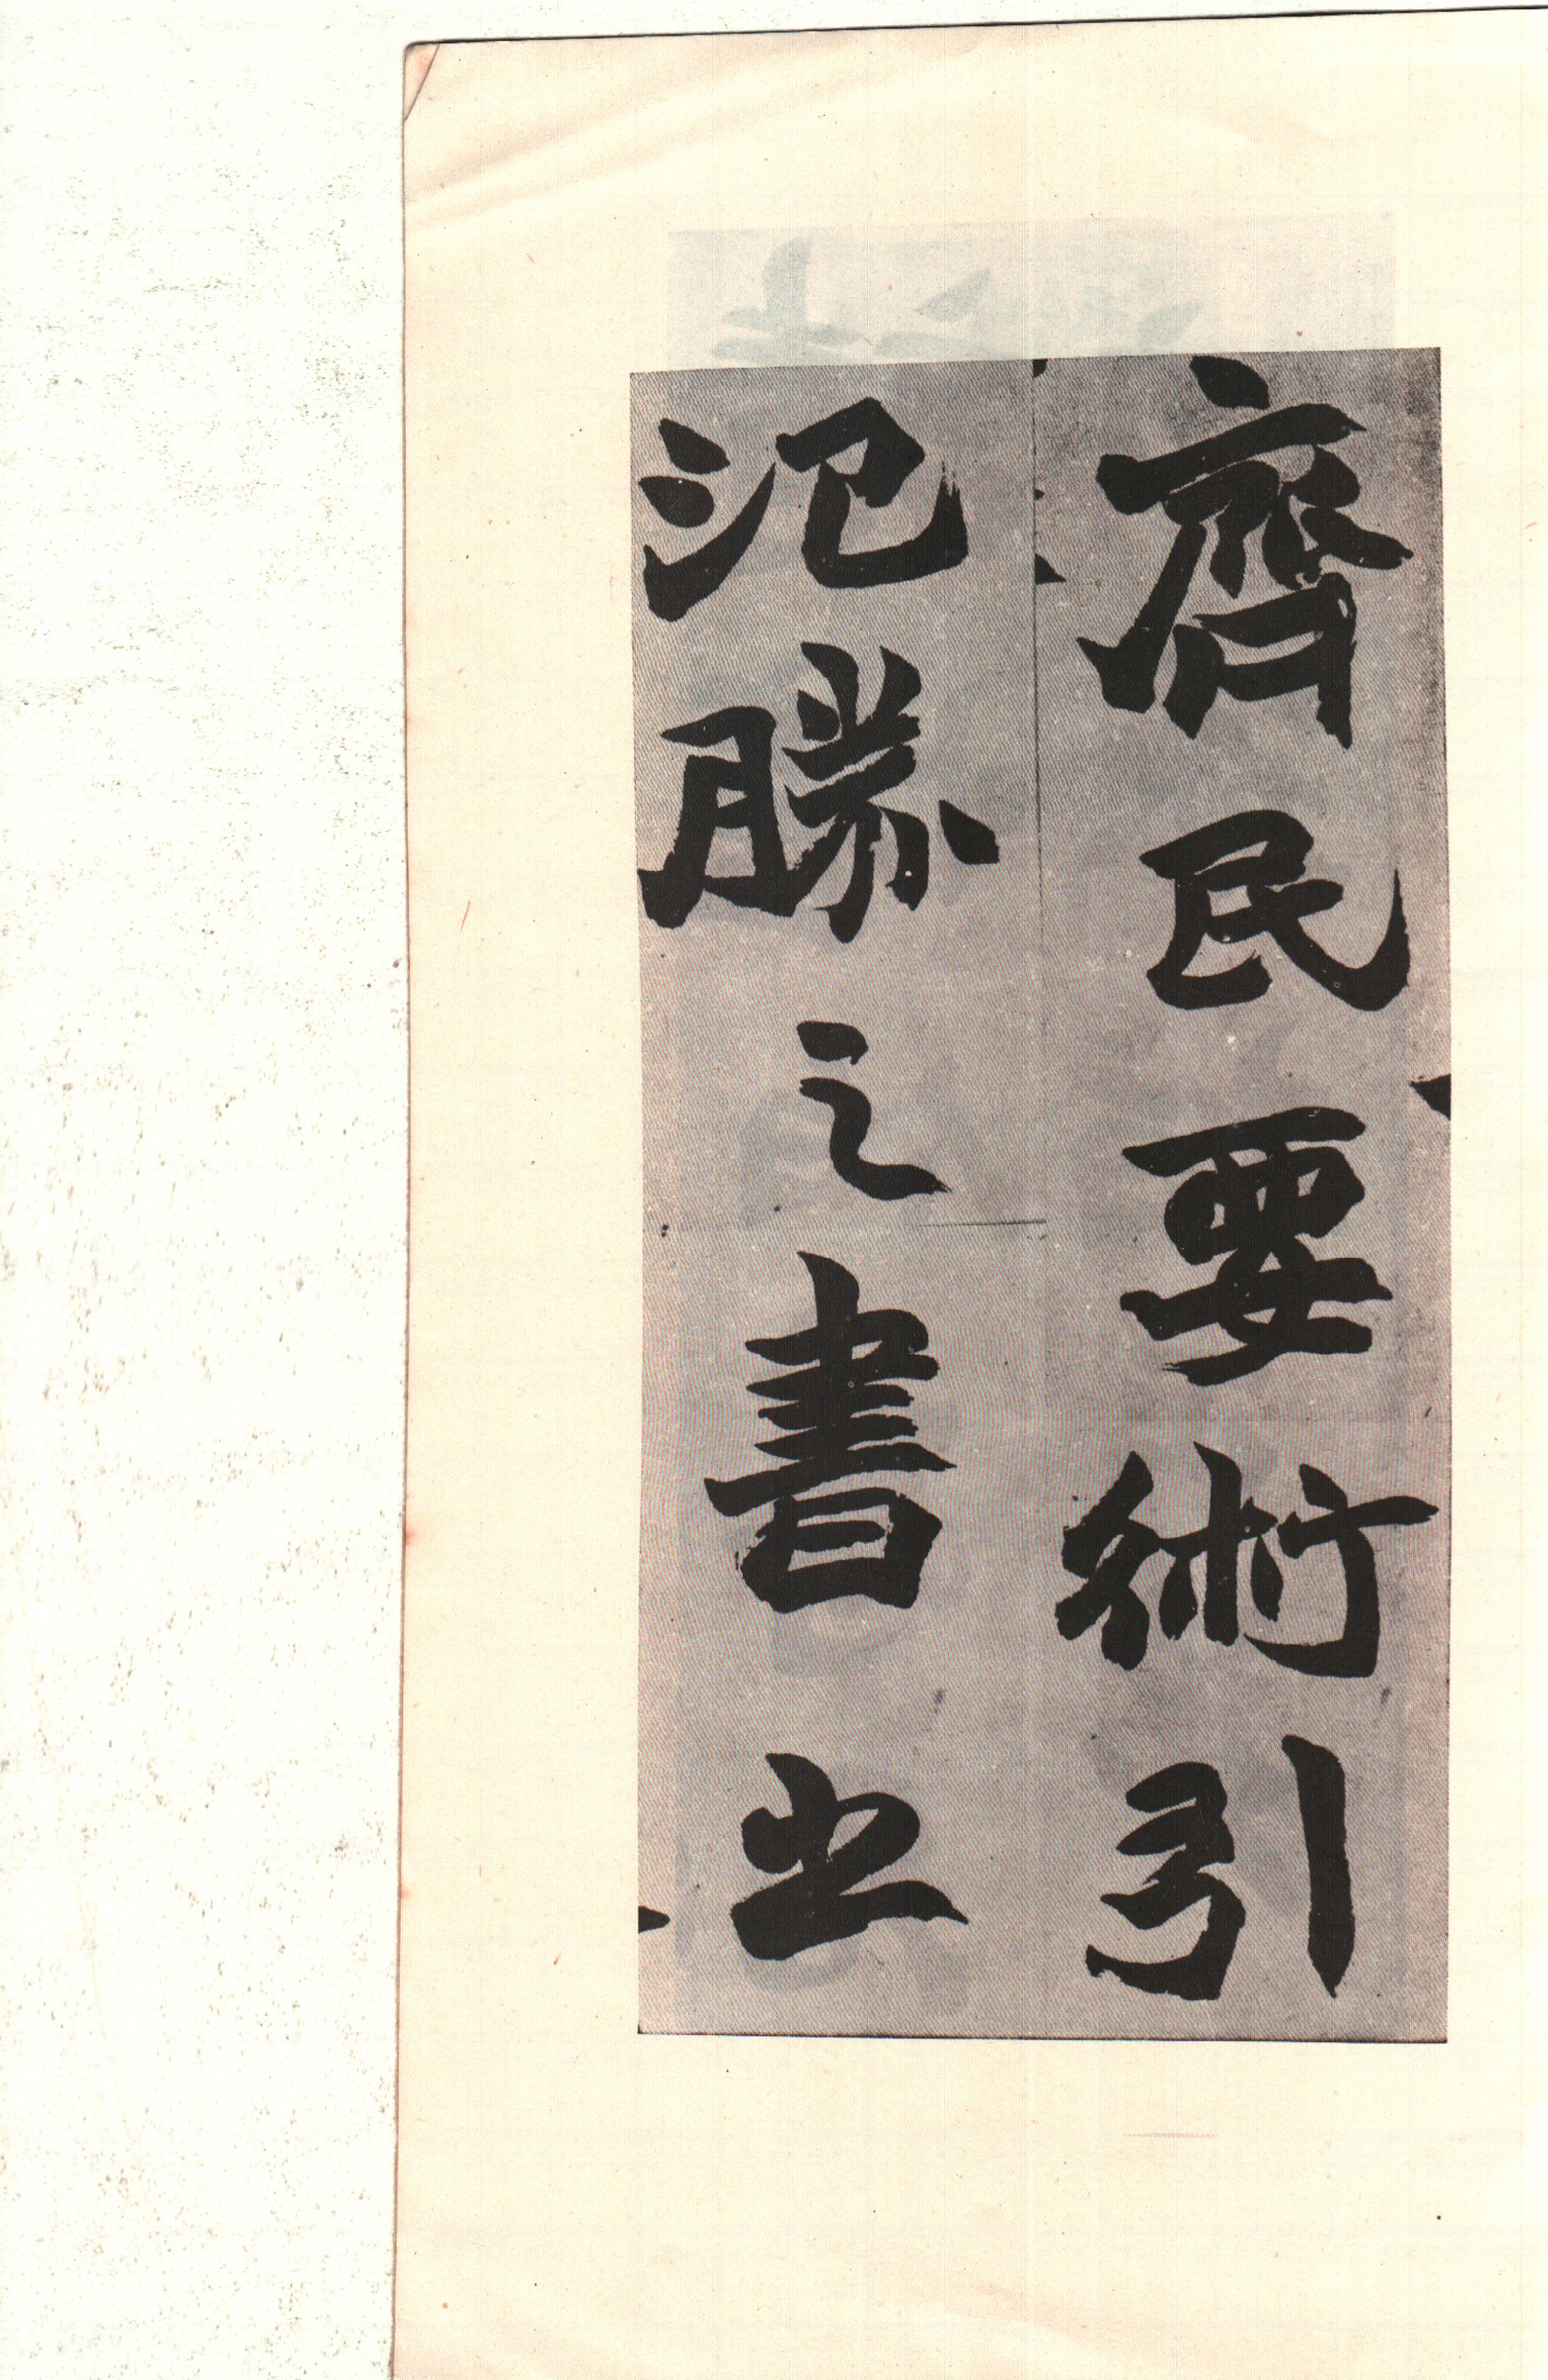 齊民要術引
氾勝之書